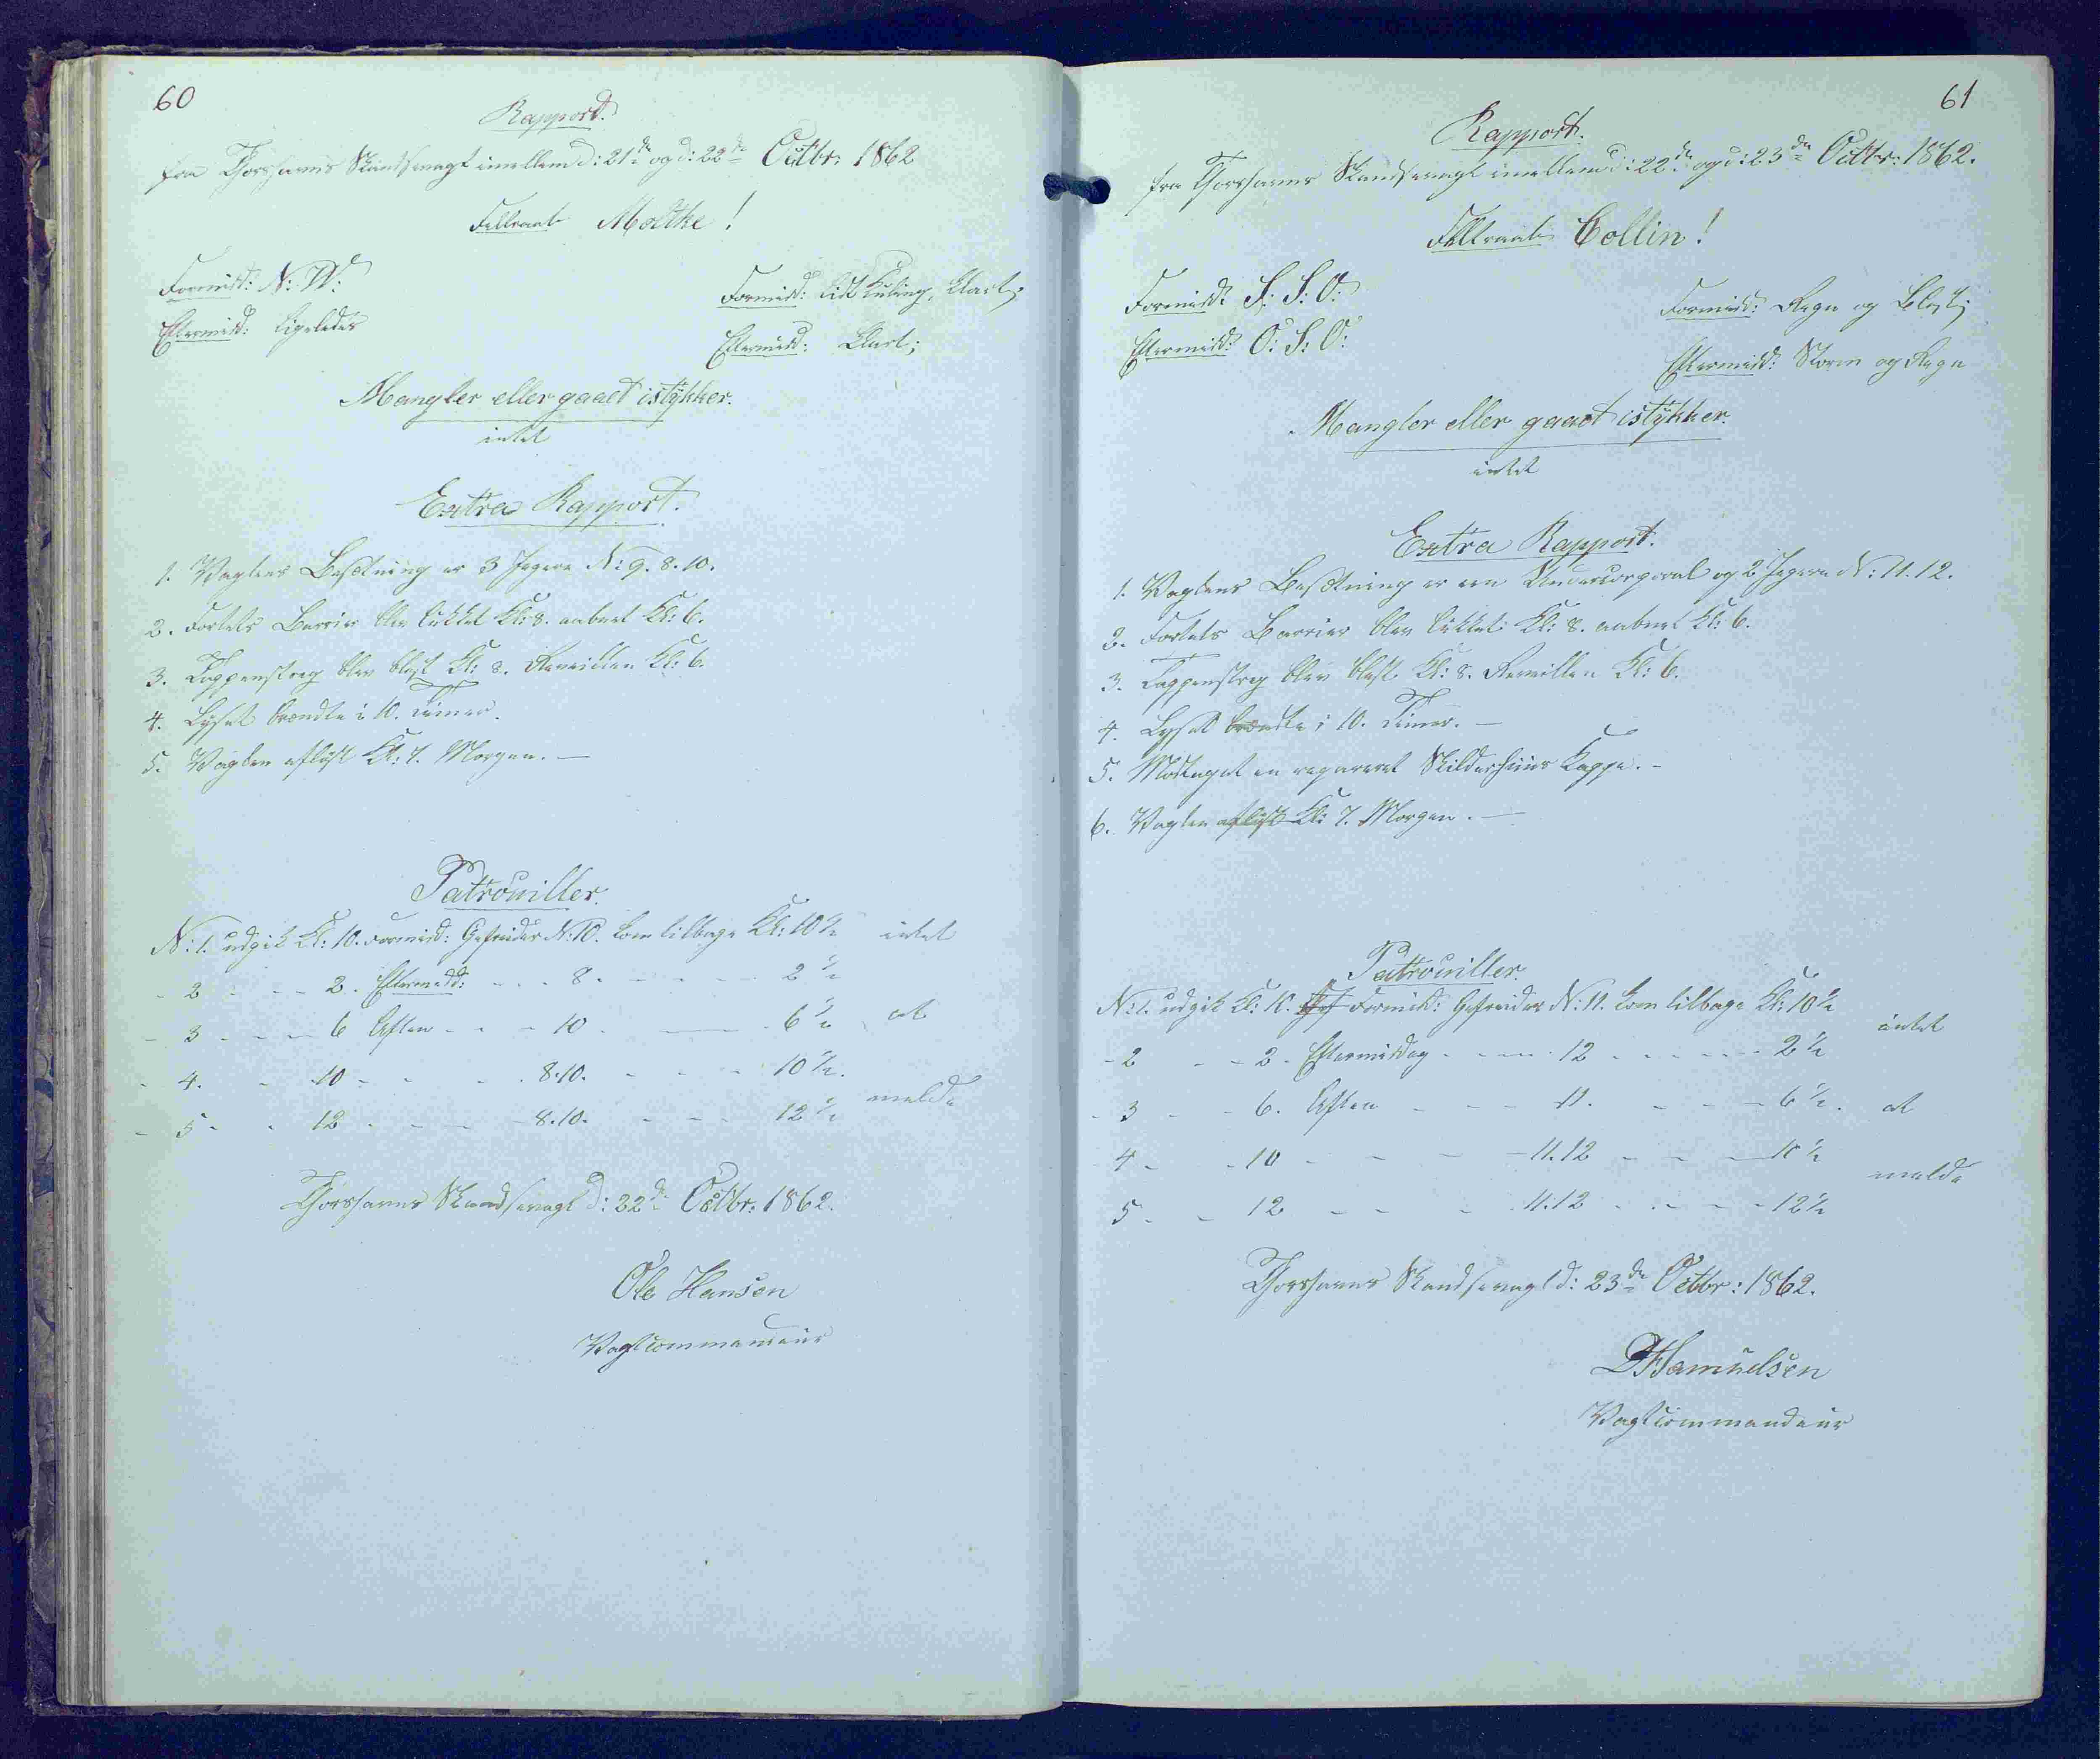 60
Rapport.
fra Thorshavns Skandsevagt imellem d: 21de og d: 22de Octbr: 1862
Feltraab Moltke!
Formidd: N: W:
Formidd: lidt Kuling, Klart;
Eftermidd: ligeledes
Eftermidd: Klart;
Mangler eller gaaet istykker.
intet
Extra Rapport.
1. Vagtens Besætning er 3 Jægere N: 9. 8. 10.
2. Fortets Barrier blev lukket Kl: 8. aabnet Kl: 6.
3. Tappenstreg blev blæst Kl: 8. Reveillen Kl: 6.
4. Lyset brændte i 10. Timer.
5. Vagten afløst Kl: 7. Morgen. —
Patrouiller.
N: 1. udgik Kl: 10. Formidd: Gefreider N: 10. kom tilbage Kl: 10½ intet
- 2 - - - 2. Eftermidd: - - - 8. - - - - 2½
- 3 - - - 6 Aften - - - 10. - - - 6½ at
- 4. - 10 - - - 8.10. - - - 10½.
- 5 - - 12 - - - 8.10. - - - 12½ melde
Thorshavns Skandsevagt d: 22de Octbr: 1862.
Ole Hansen
Vagtcommandeur
61
Rapport.
fra Thorshavns Skandsevagt imellem d: 22de og d: 23de Octbr: 1862.
Feltraab Collin!
Formidd: S: S: O:
Formidd: Regn og Blæst;
Eftermidd: O: S: O:
Eftermidd: Storm og Regn
Mangler eller gaaet istykker.
intet
Extra Rapport.
1. Vagtens Besætning er een Undercorporal og 2 Jægere N: 11. 12.
2. Fortets Barrier blev lukket Kl: 8. aabnet Kl: 6.
3. Tappenstreg blev blæst Kl: 8. Reveillen Kl: 6.
4. Lyset brændte i 10. Timer. —
5. Modtaget en repareret Skilderhuus Kappe. -
6. Vagten afløst Kl: 7. Morgen. —
Patrouiller.
N: 1. udgik Kl: 10. Formidd: Gefreider N: 11. kom tilbage Kl: 10½
intet
- 2 - - 2. Eftermiddag - - - 12 - - - - 2½
- 3 - - 6. Aften - - - 11. - - - 6½. at
4 - - 10 - - - - 11.12 - - - 10½
melde
5 - - 12 - - - 11.12 - - - - 12½
Thorshavns Skandsevagt d: 23de Octbr: 1862.
Samuelsen
Vagtcommandeur